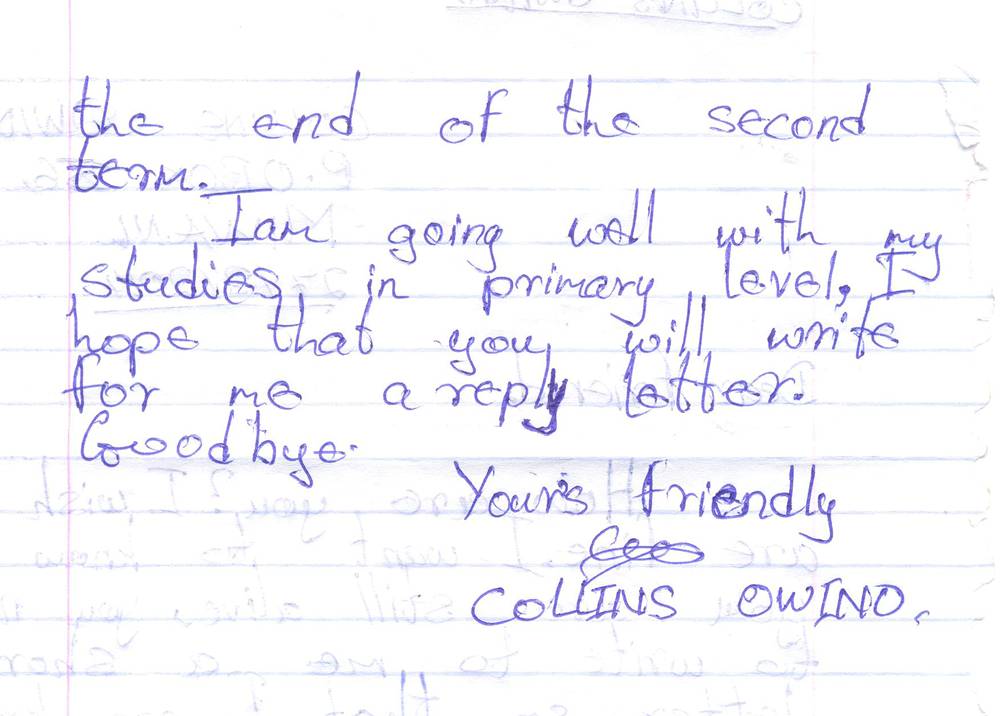 the end of the second
term.
Iam going well with my
studies in primary level, I
hope that you will write
for me a reply letter.
Goodbye.
Yours friendly
COLLINS OWINO.